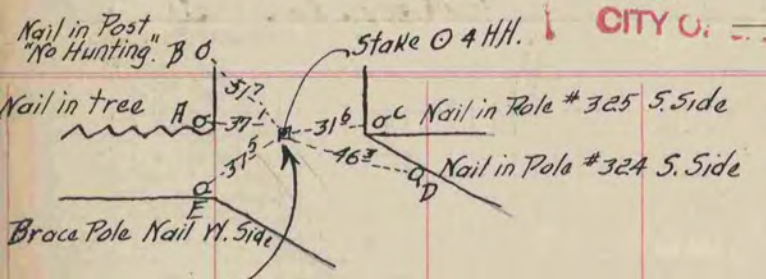 Nail in Post
"No Hunting." B
Stake ⊙ 4 HH.
CITY O
51⁷
Nail in tree A
37¹
31⁶
C Nail in Pole #325 S. Side
37⁵
46³
D Nail in Pole #324 S. Side
E
Brace Pole Nail W. Side